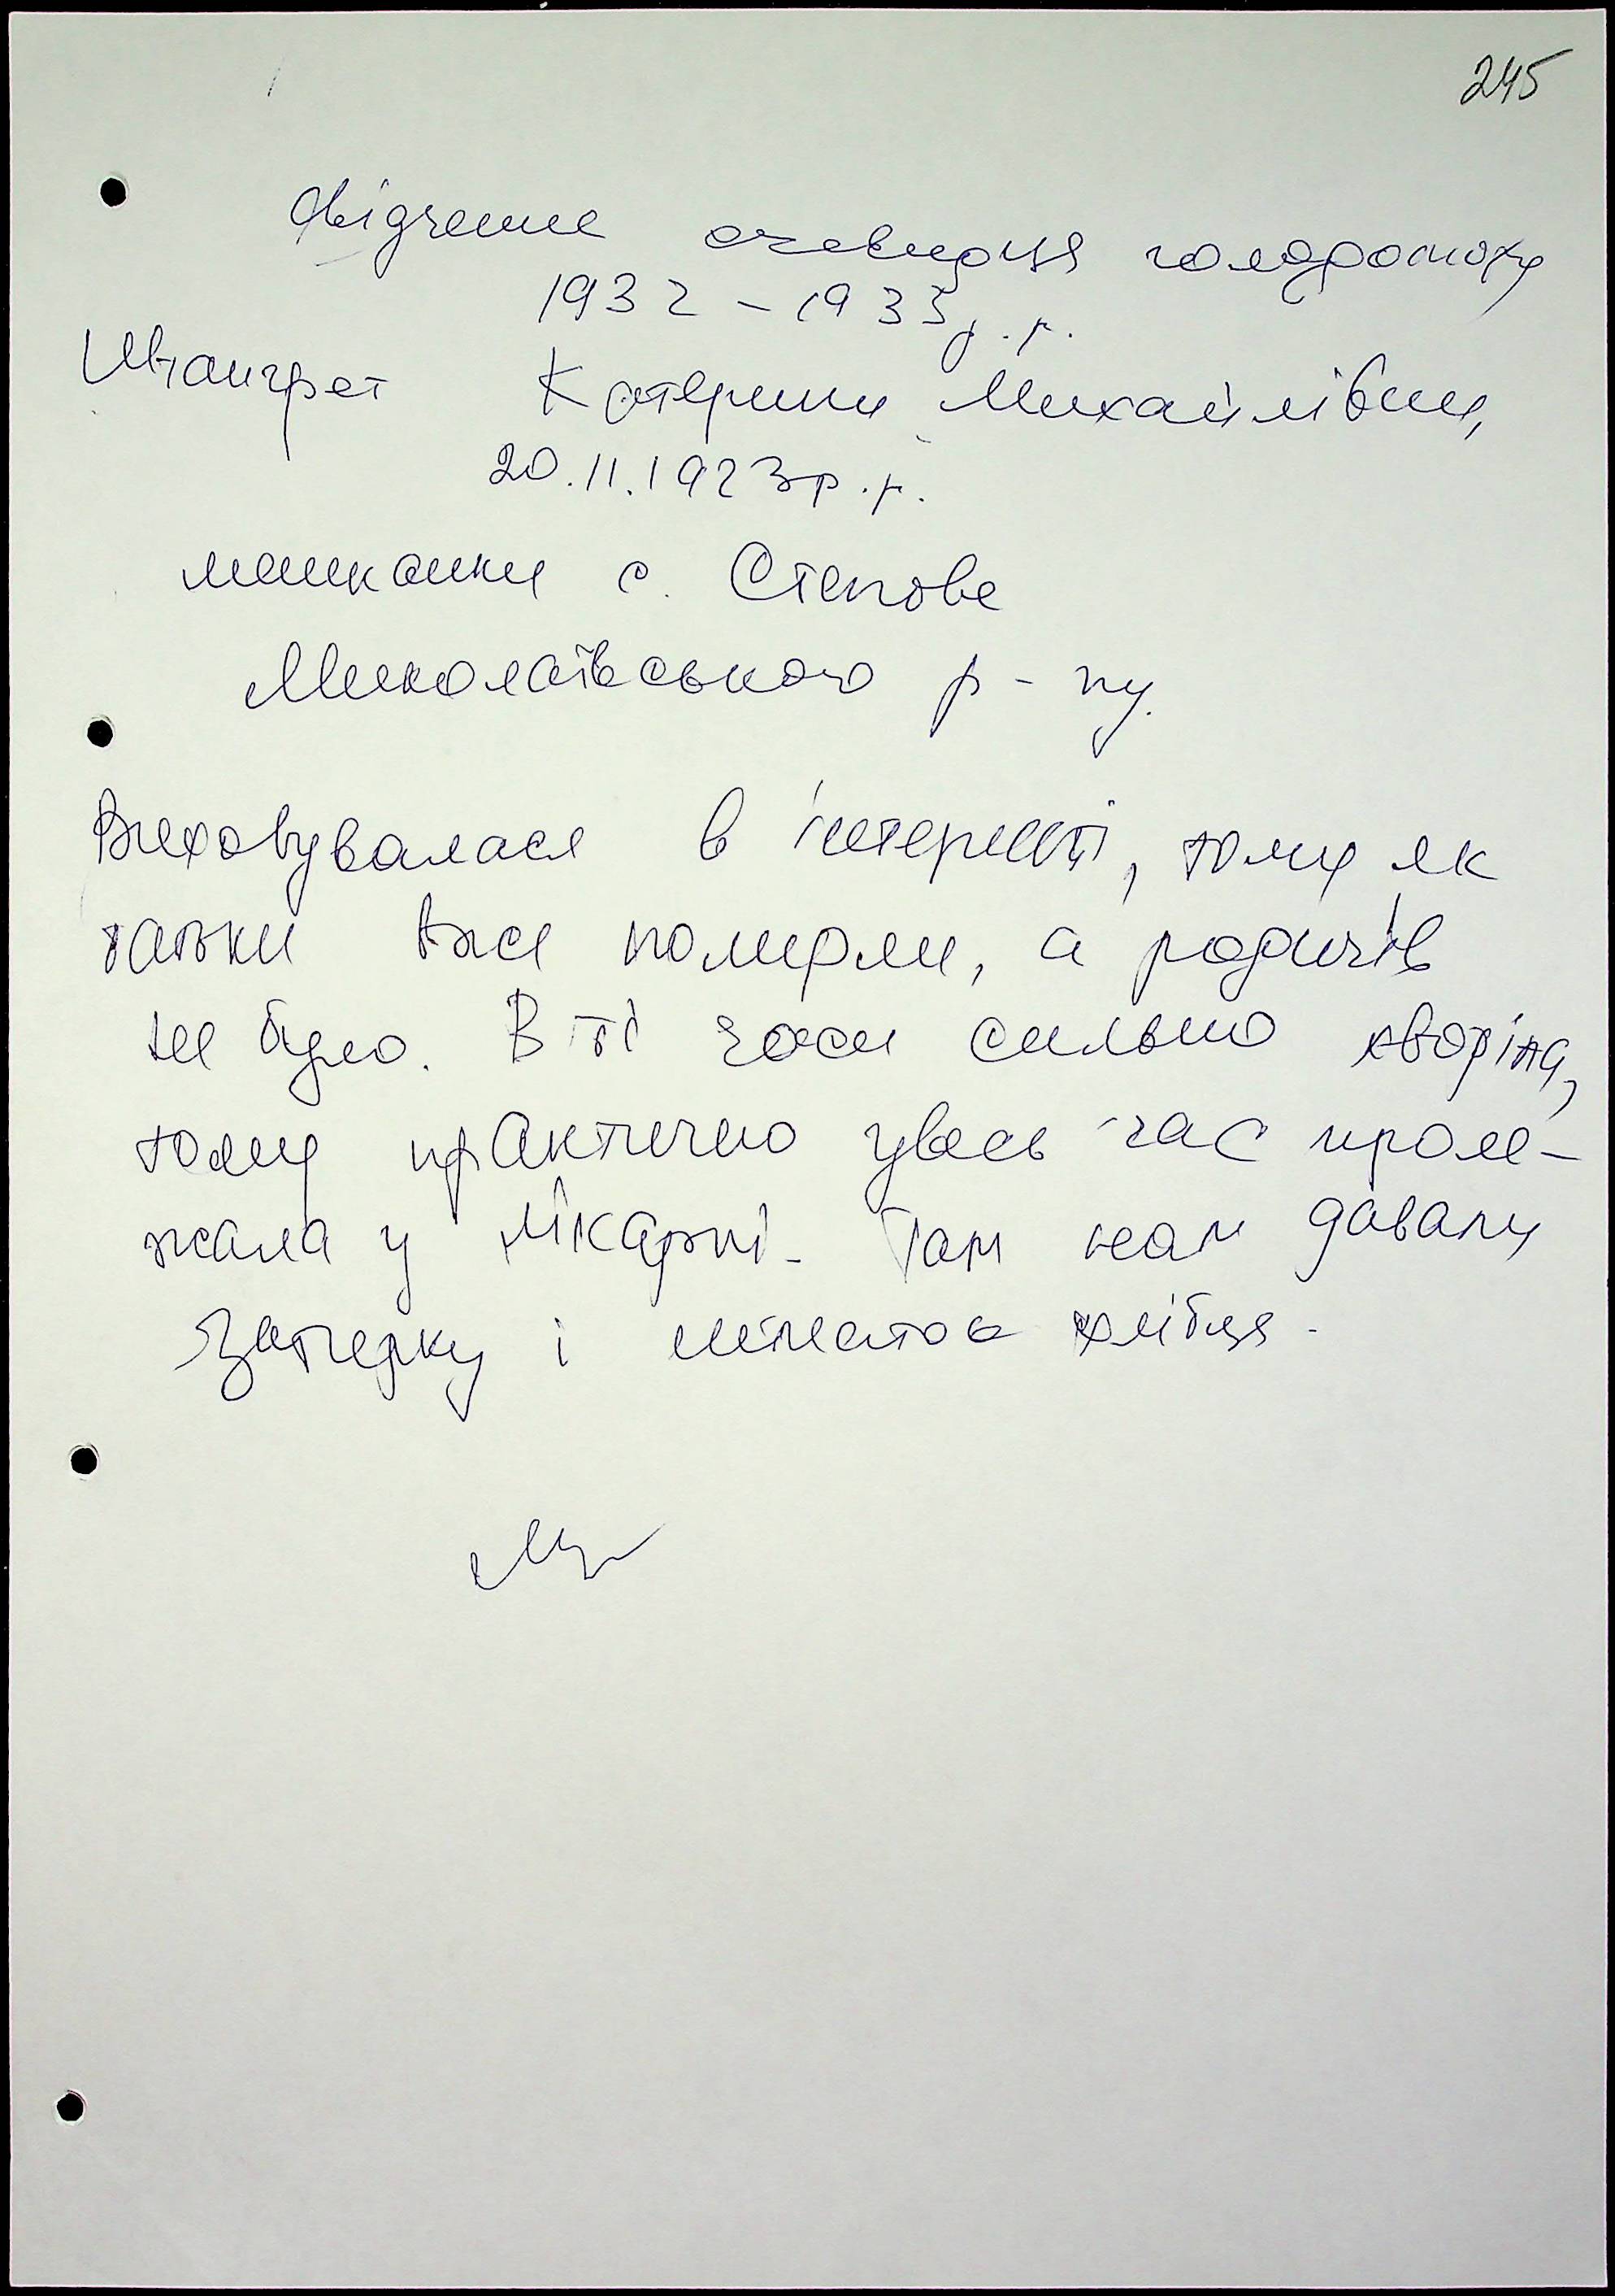 245
Свідчення очевидця голодомору
1932 - 1933 р.р.
Катерини Михайлівни,
20.11.1923 р.р.
мешканки с. Степове
Миколаївського р-ну.
Виховувалася в інтернаті, тому як
батьки вже померли, а родичів
не було. В ті часи сильно хворіла,
тому практично увесь час проле-
жала у лікарні. Там нам давали
затірку і шматок хлібця.